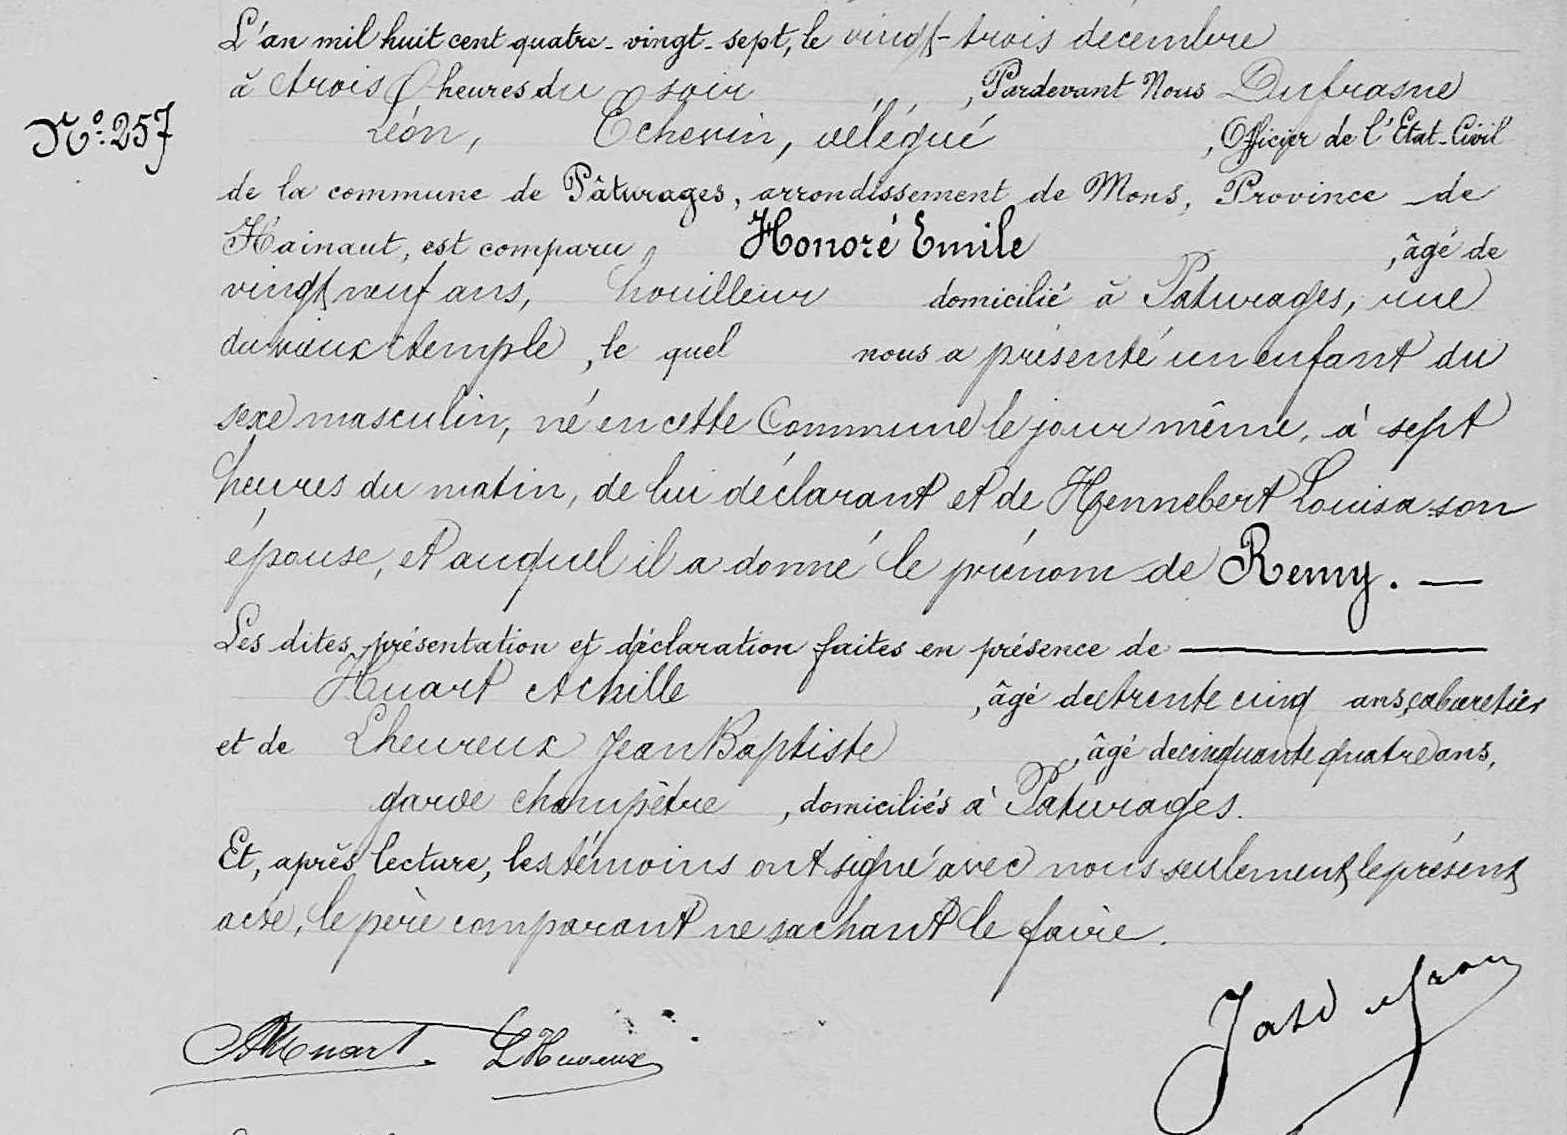 L'an mil huit cent quatre-vingt-sept, le vingt-trois décembre
à trois heures du soir ,, ,Pardevant Nous Dufrasne
N°: 257
Léon, Echevin, délégué , Officier de l'Etat-Civil
de la commune de Pâturages, arrondissement de Mons, Province de
Hainaut, est comparu Honoré Emile , âgé de
vingt neuf ans, houilleur domicilié à Paturages, rue
du vieux temple , le quel nous a présenté un enfant du
sexe masculin, né en cette Commune le jour même, à sept
heures du matin, de lui déclarant et de Hennebert Louisa son
épouse, et auquel il a donné le prénom de Remy. —
Les dites présentation et déclaration faites en présence de —
Huart Achille , âgé de trente cinq ans, cabaretier
et de Lheureux Jean Baptiste , âgé de cinquante quatre ans,
garde champêtre , domiciliés à Paturages.
Et, après lecture, les témoins ont signé avec nous seulement le présent
acte, le père comparant ne sachant le faire.
AHuart. LHeureux